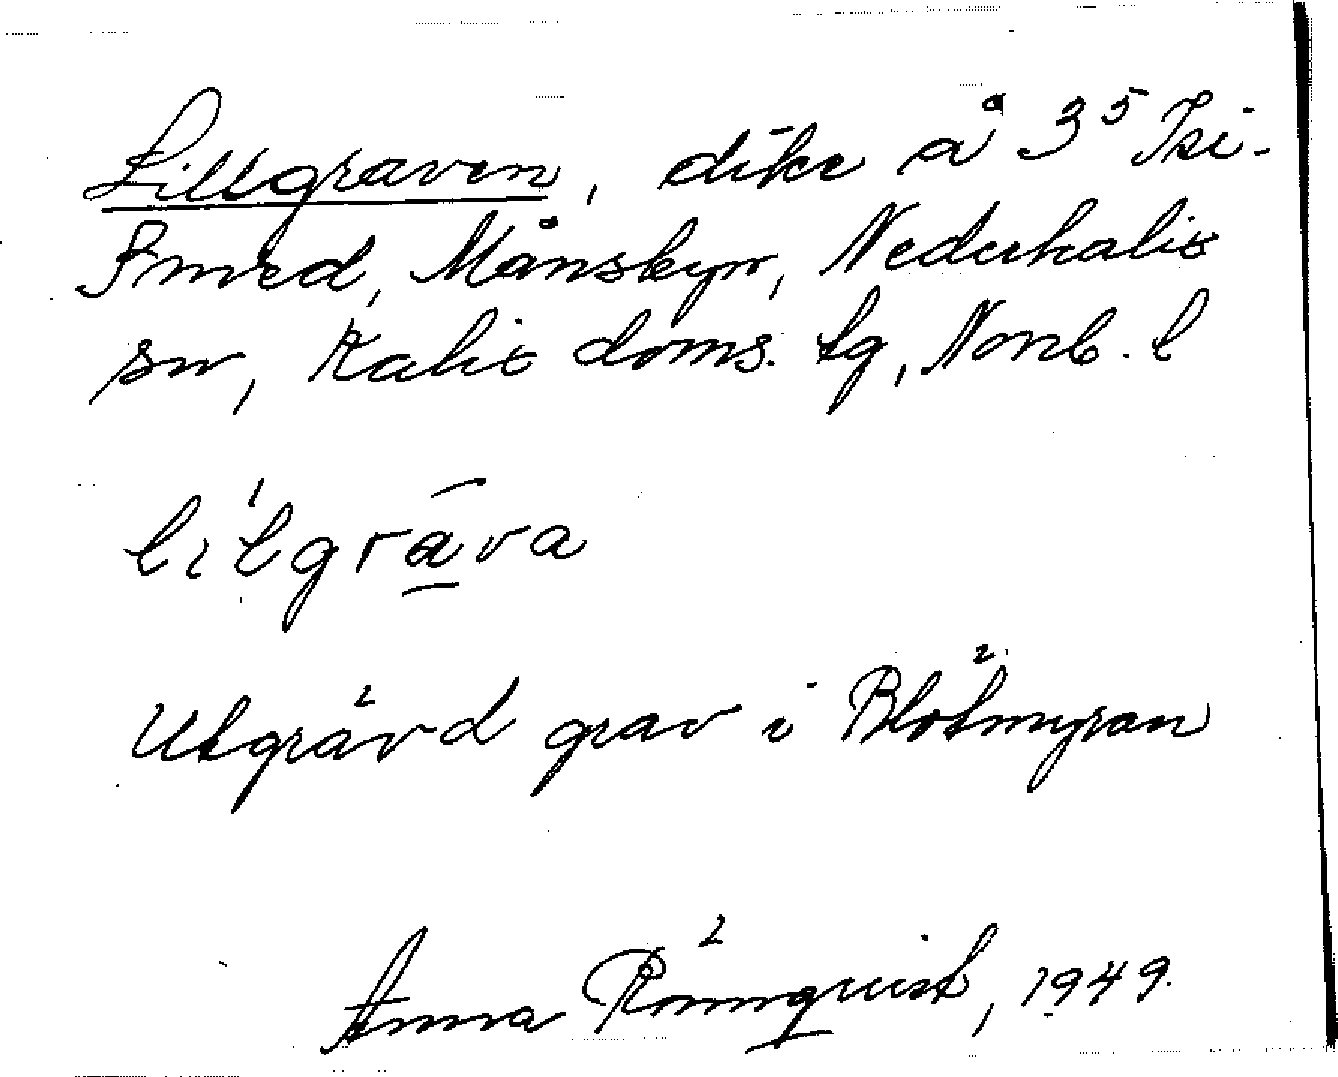 Lillgraven, dike å 3⁵ Isi-
Smed, Månsbyn, Nederkalix
sn, Kalix doms. lg, Norrb. l
lilgrava
Utgrävd grav i Blötmyran
Anna Rönnquist, 1949.